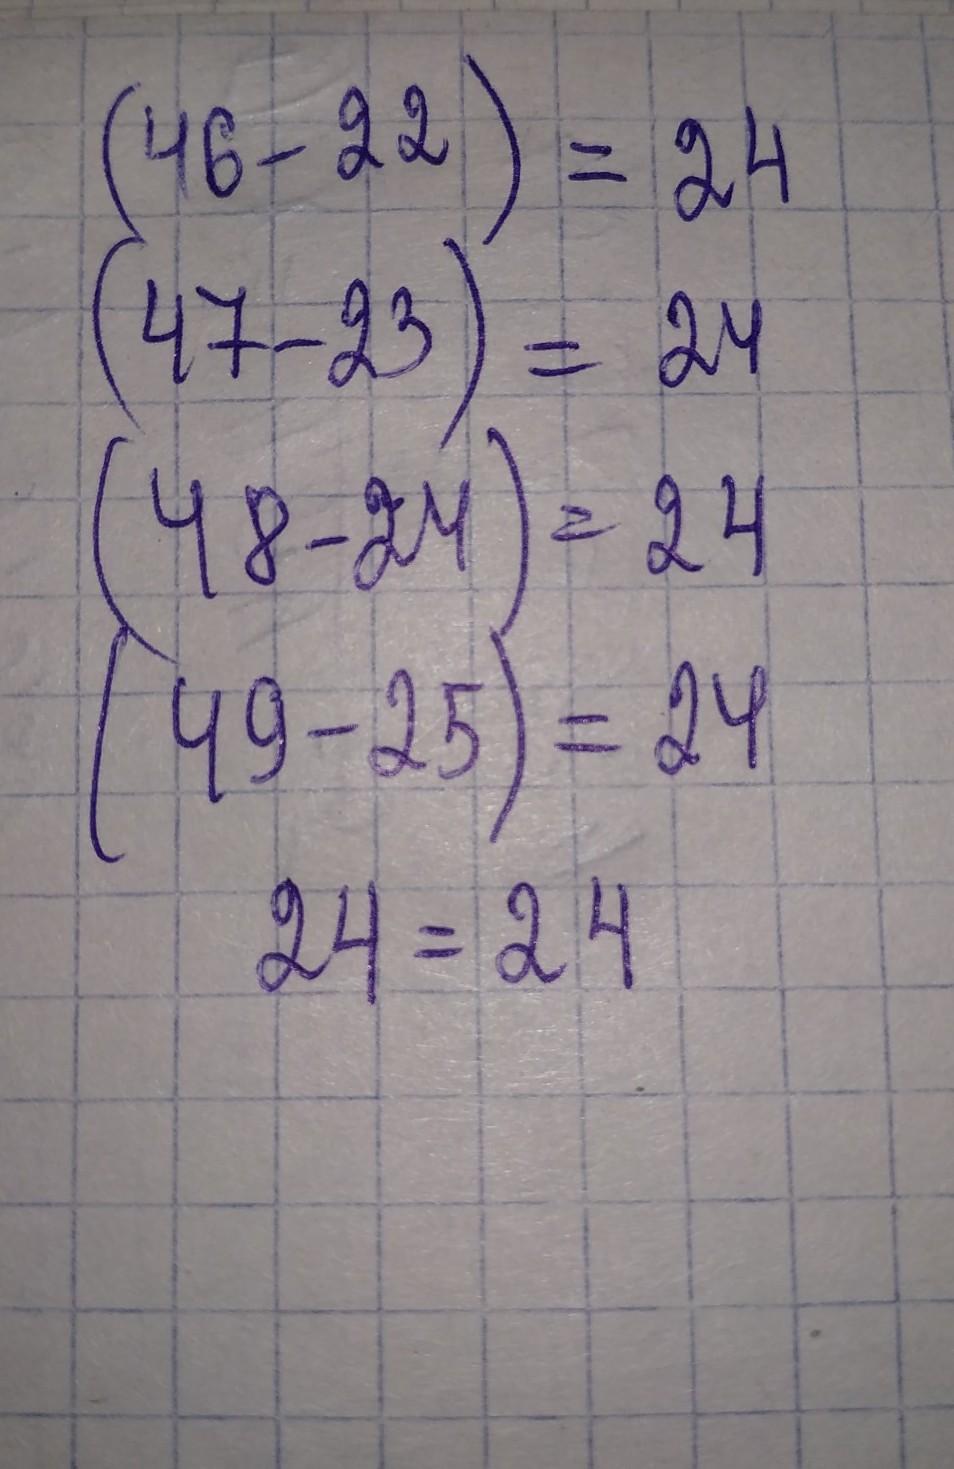 (46-22) = 24
(47-23) = 24
(48-24) = 24
(49-25) = 24
24 = 24